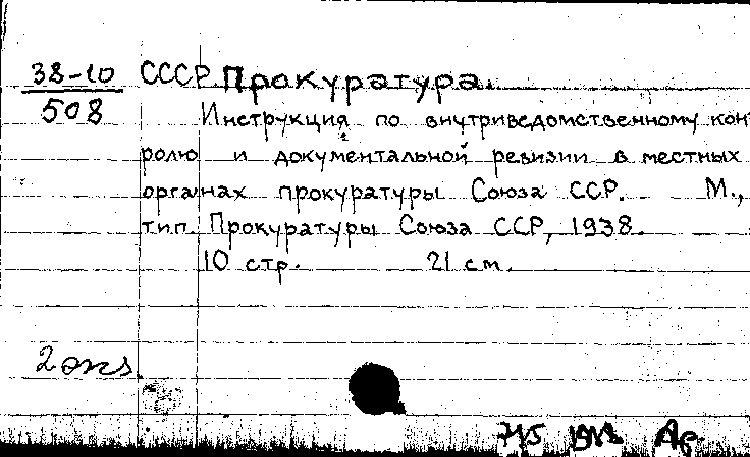 38-10
508
СССР Прокуратура.
Инструкция по внутриведомственному кон
ролю и документальной ревизии в местных
органах прокуратуры Союза ССР. М.,
тип. Прокуратуры Союза ССР, 1938.
10 стр. 21 см.
2 экз.